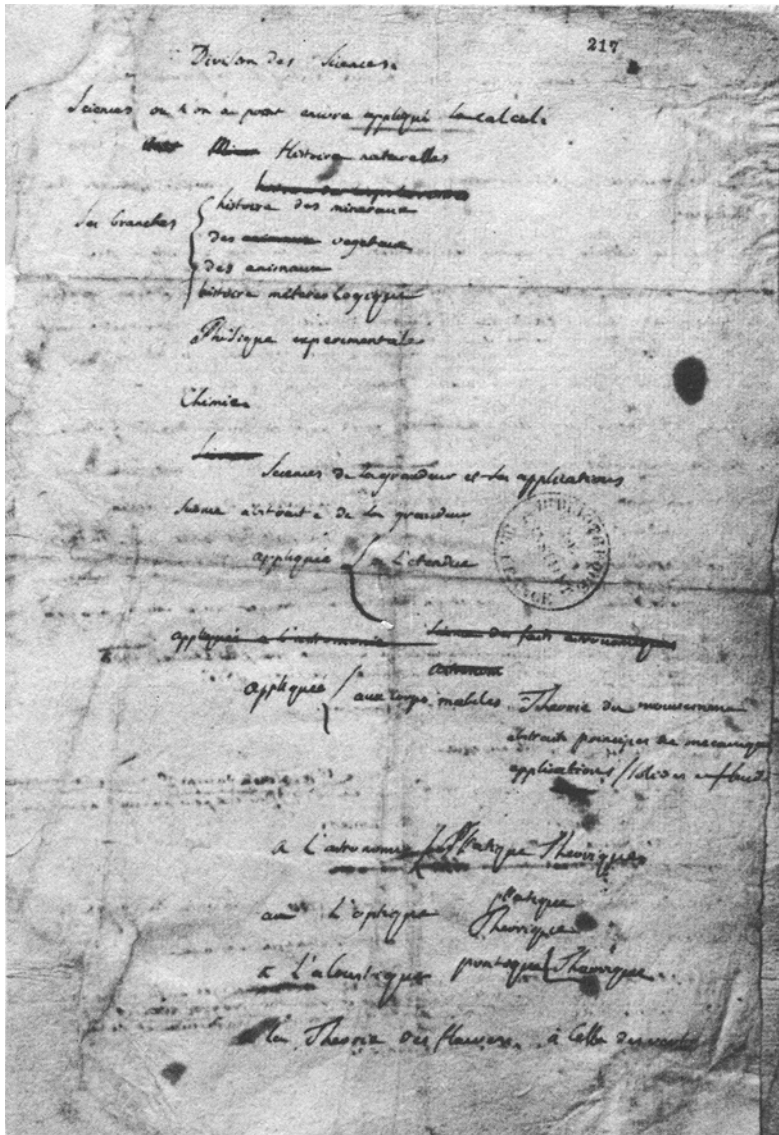 217
Division des Sciences.
Sciences ou l'on a point encore appliqué le calcul.
Histoire naturelles
histoire des mineraux
Ses branches
des animaux vegetaux
des animaux
histoire météreologique
Phisique experimentale
Chimie.
Sciences de la grandeur et ses applications
Science abstraite de la grandeur
appliquée a l'etendue
appliquée a l'astronomie Science des faits astronomiques
astronom
appliquée aux corps mobiles Theorie du mouvement
abstrait principes de mecanique
applications solides
a L'astronomie Pratique Theorique
au L'optique pratique
Theorique
a L'acoustique pratique Theorique
la Theorie des fleuves à celle des vents